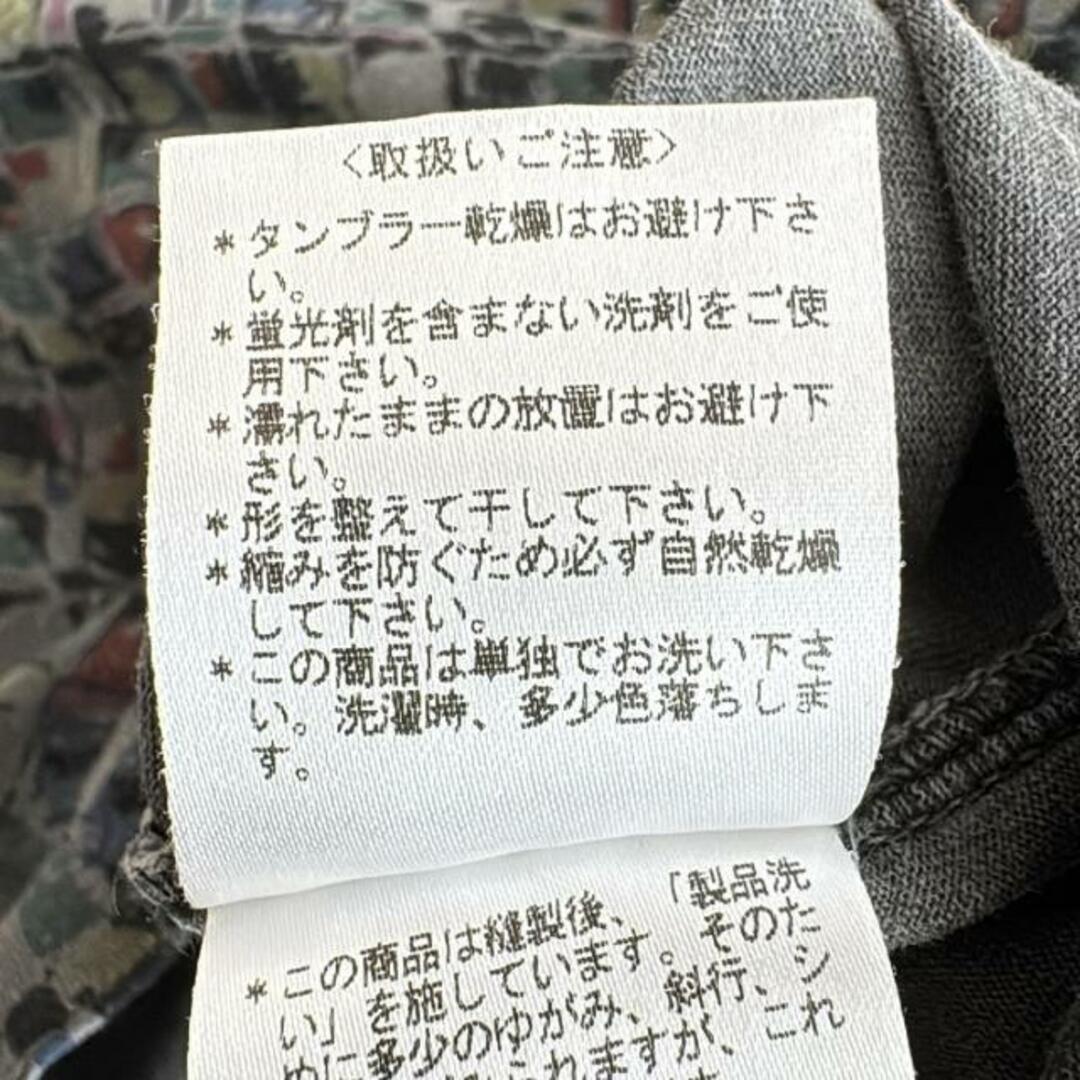 〈取扱いご注意〉
*タンブラー乾燥はお避け下さ
い。
*蛍光剤を含まない洗剤をご使
用下さい。
*濡れたままの放置はお避け下
さい。
*形を整えて干して下さい。
*縮みを防ぐため必ず自然乾燥
して下さい。
*この商品は単独でお洗い下さ
い。洗濯時、多少色落ちしま
す。
*この商品は縫製後、「製品洗
い」を施しています。そのた
めに多少のゆがみ、斜行、シ
られますが、これ